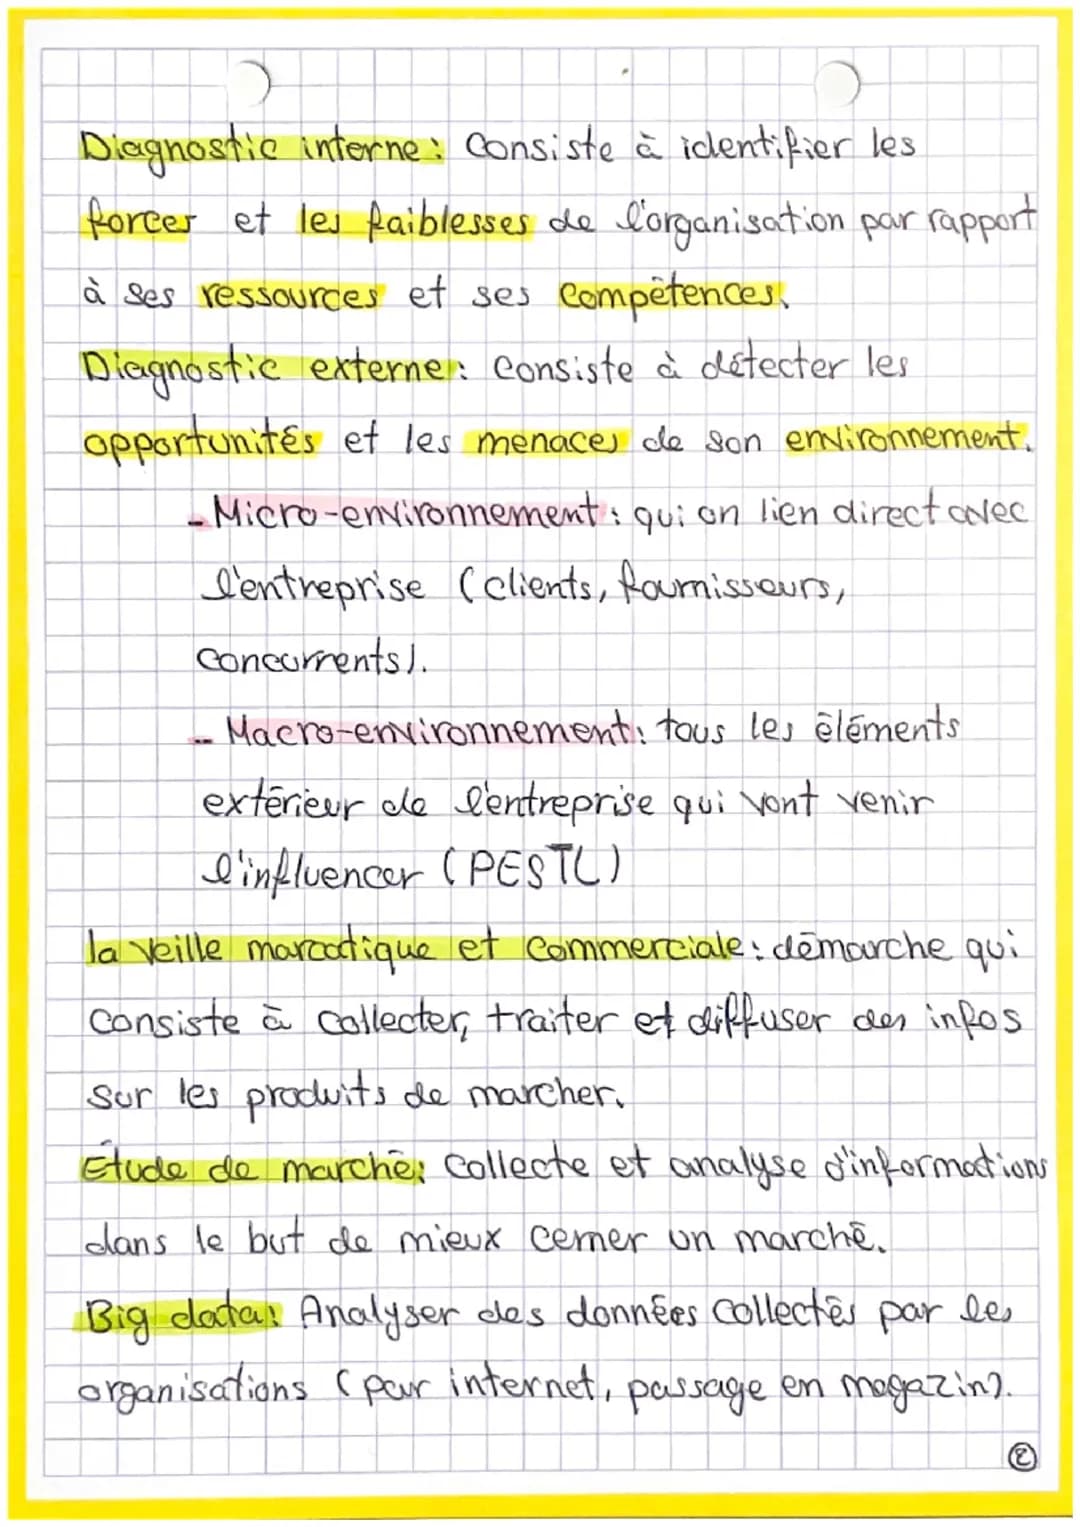 Diagnostic interne : Consiste à identifier les
forces et les faiblesses de l'organisation par rapport
à ses ressources et ses compétences.
Diagnostic externe : Consiste à détecter les
opportunités et les menaces de son environnement.
- Micro-environnement : qui on lien direct avec
l'entreprise (clients, fournisseurs,
concurrents).
- Macro-environnement : tous les éléments
extérieur de l'entreprise qui vont venir
l'influencer (PESTL)
la veille marcatique et commerciale : démarche qui
consiste à collecter, traiter et diffuser des infos
sur les produits de marcher.
Etude de marché : Collecte et analyse d'informations
dans le but de mieux cerner un marché.
Big data : Analyser des données collectés par les
organisations (par internet, passage en magazin).
2